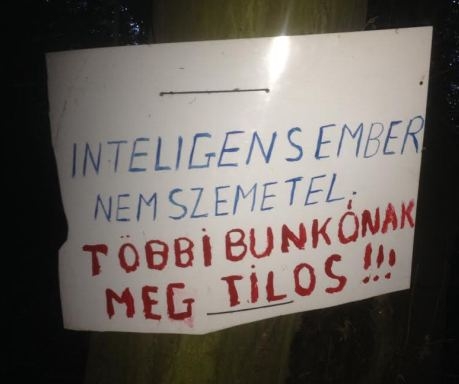 INTELIGENS EMBER
NEM SZEMETEL.
TÖBBI BUNKÓNAK
MEG TILOS!!!